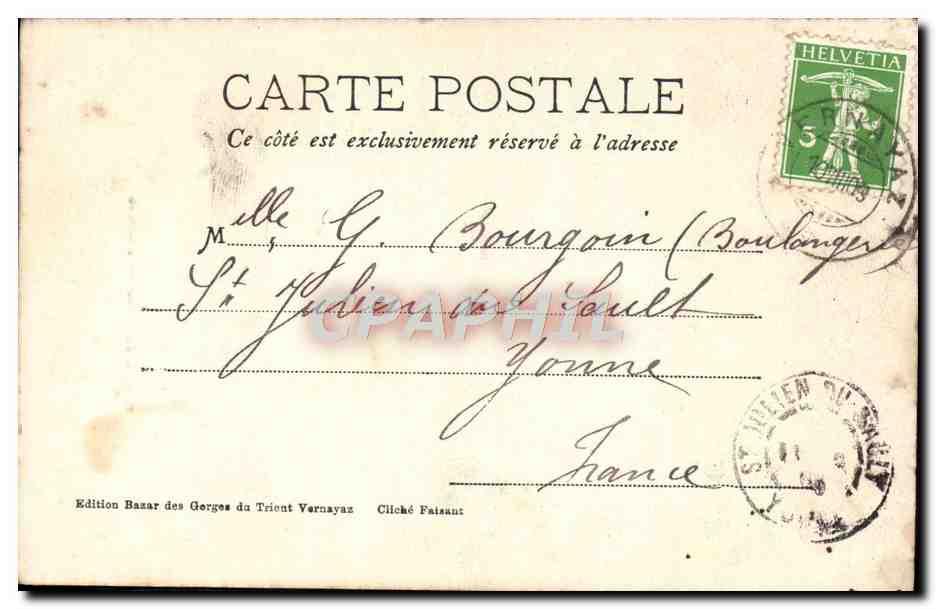 HELVETIA
5
CARTE POSTALE
Ce côté est exclusivement réservé à l'adresse
ERNAYAZ
Melle G. Bourgoin (Boulangerie
St Julien du Sault
CPAPHIL
Yonne
France
ST JULIEN DU SAULT
11
YONNE
Edition Bazar des Gorges du Trient Vernayaz Cliché Faisant